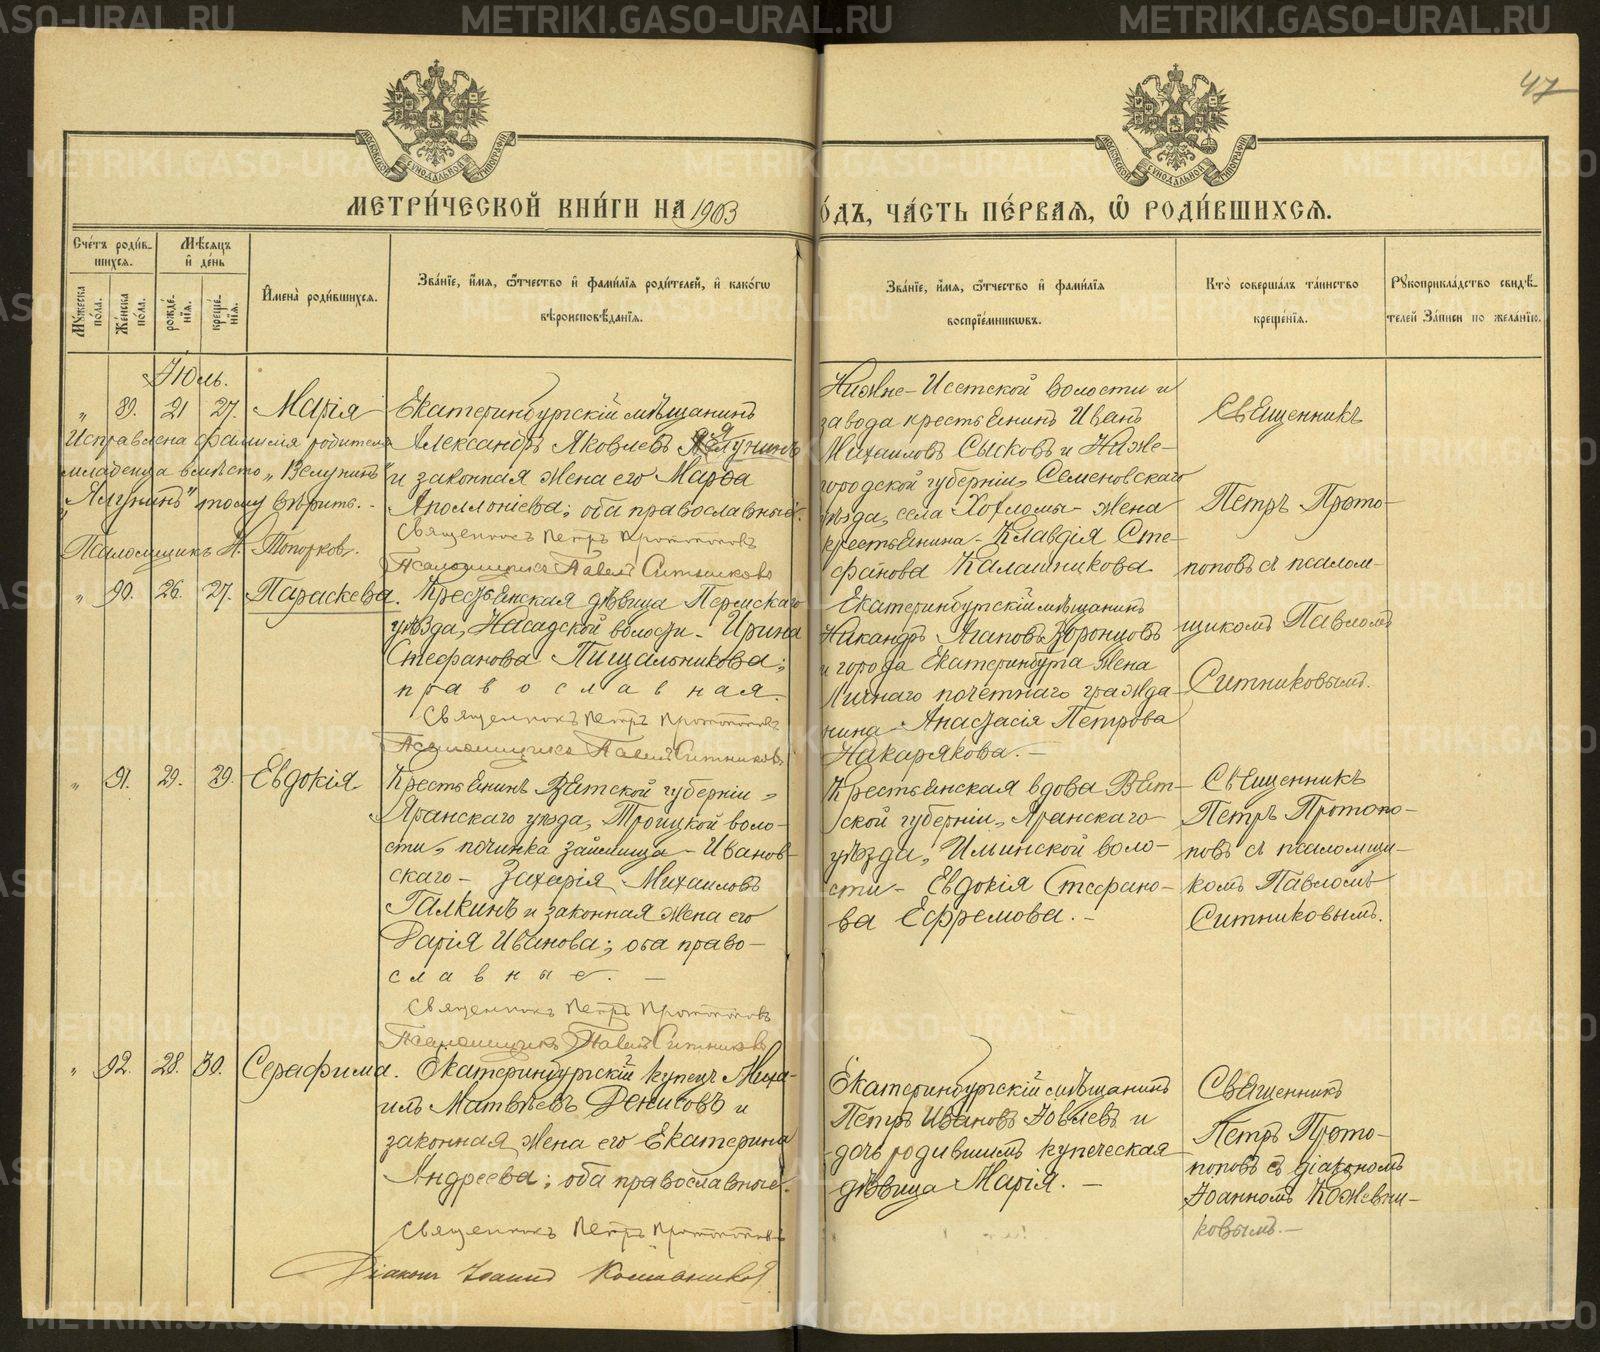 47
МОСКОВСКОЙ СѴНОДАЛЬНОЙ ТИПОГРАФІИ
МОСКОВСКОЙ СѴНОДАЛЬНОЙ ТИПОГРАФІИ
МЕТРИ́ЧЕСКОЙ КНИ́ГИ НА 1903
О́ДЪ, ЧА́СТЬ ПЕ́РВАЯ, Ѽ РОДИ́ВШИХСЯ.
Сче́тъ роди́в-
шихся.
Мѣ́сяцъ
и де́нь
Мꙋ́жеска
по́ла.
Же́нска
по́ла.
рожде́-
нія.
креще́-
нія.
Имена̀ роди́вшихся.
Зва́ніе, и́мя, ѻ́тчество и фами́лія роди́телей, и како́гѡ
вѣроисповѣ́данія.
Зва́ніе, и́мя, ѻ́тчество и фами́лія
воспріе́мникѡвъ.
Кто̀ соверша́лъ та́инство
креще́нія.
Рꙋкоприкла́дство свидѣ́-
телей за́писи по жела́нію.
Іюль.
„ 89. 21 27. Марія
Исправлена фамилія родителя
младенца вмѣсто „Велунинъ"
„Ялунинъ" тому вѣрить. -
Псаломщикъ Н. Топорковъ.
Екатеринбургскій мѣщанинъ
Александръ Яковлевъ Ялунинъ
и законная жена его Марѳа
Аполлоніева; оба православные.
Священникъ Петръ Протопоповъ
Псаломщикъ Павелъ Ситниковъ
Нижне-Исетской волости и
завода крестьянинъ Иванъ
Михаиловъ Сысковъ и Ниже-
городской губерніи, Семеновскаго
уѣзда, села Хохломы - жена
крестьянина - Клавдія Сте-
фанова Калашникова.
Священникъ
Петръ Прото-
поповъ съ псалом-
щикомъ Павломъ
Ситниковымъ.
„ 90. 26. 27. Параскева.
Крестьянская дѣвица Пермскаго
уѣзда, Насадской волости - Ирина
Стефанова Пищальникова;
православная.
Священникъ Петръ Протопоповъ
Псаломщикъ Павелъ Ситниковъ
Екатеринбургскій мѣщанинъ
Никандръ Агаповъ Воронцовъ
и города Екатеринбурга жена
Личнаго почетнаго гражда-
нина Анастасія Петрова
Накарякова. -
„ 91. 29. 29. Евдокія
Крестьянинъ Вятской губерніи,
Яранскаго уѣзда, Троицкой воло-
сти, починка займища - Иванов-
скаго - Захарія Михаиловъ
Галкинъ и законная жена его
Дарія Иванова; оба право-
славные. -
Священникъ Петръ Протопоповъ
Псаломщикъ Павелъ Ситниковъ
Крестьянская вдова Вят-
ской губерніи, Яранскаго
уѣзда, Ильинской воло-
сти - Евдокія Стефано-
ва Ефремова. -
Священникъ
Петръ Протопо-
повъ съ псаломщи-
комъ Павломъ
Ситниковымъ.
„ 92. 28. 30. Серафима.
Екатеринбургскій купецъ Миха-
илъ Матвѣевъ Денисовъ и
законная жена его Екатерина
Андреева; оба православные.
Священникъ Петръ Протопоповъ
Діаконъ Іоаннъ Кожевниковъ
Екатеринбургскій мѣщанинъ
Петръ Ивановъ Іовлевъ и
дочь родившимъ купеческая
дѣвица Марія. -
Священникъ
Петръ Прото-
поповъ съ діакономъ
Іоанномъ Кожевни-
ковымъ. -
METRIKI.GASO-URAL.RU